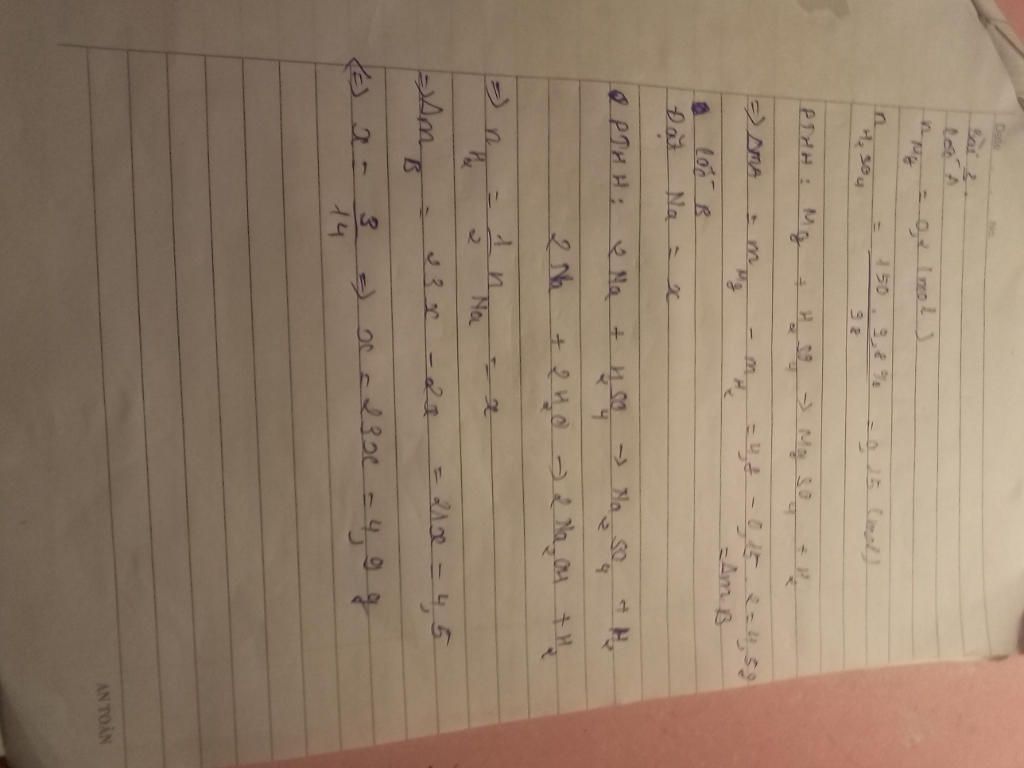 Bài 2.
Cốc A
n Mg = 0,2 (mol)
n H2SO4 = 150 . 9,8% / 98 = 0,15 (mol)
PTHH: Mg + H2SO4 → MgSO4 + H2
=> ΔmA = m Mg - m H2 = 4,8 - 0,15 . 2 = 4,5g
= Δm B
Cốc B
Đặt Na = x
PTHH: 2Na + H2SO4 → Na2SO4 + H2
2Na + 2H2O → 2Na2OH + H2
=> n H2 = 1/2 n Na = x
=> Δm B = 23x - 2x = 21x = 4,5
(=) x = 3/14 => x = 23x = 4,9 g
AN TOÀN